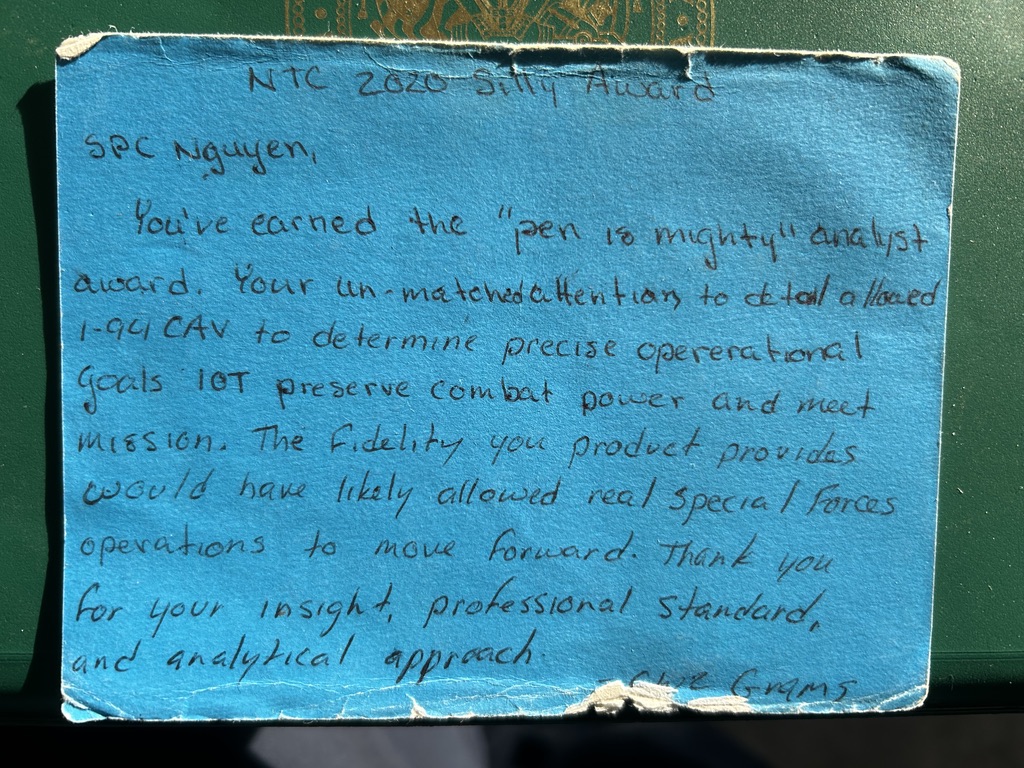 NTC 2020 Silly Award
SPC Nguyen,
You've earned the "pen is mighty" analyst
award. Your un-matched attention to detail allowed
1-94 CAV to determine precise opererational
Goals IOT preserve combat power and meet
mission. The Fidelity you product provides
would have likely allowed real Special Forces
operations to move forward. Thank you
for your insight, professional standard,
and analytical approach.
CW2 Grams